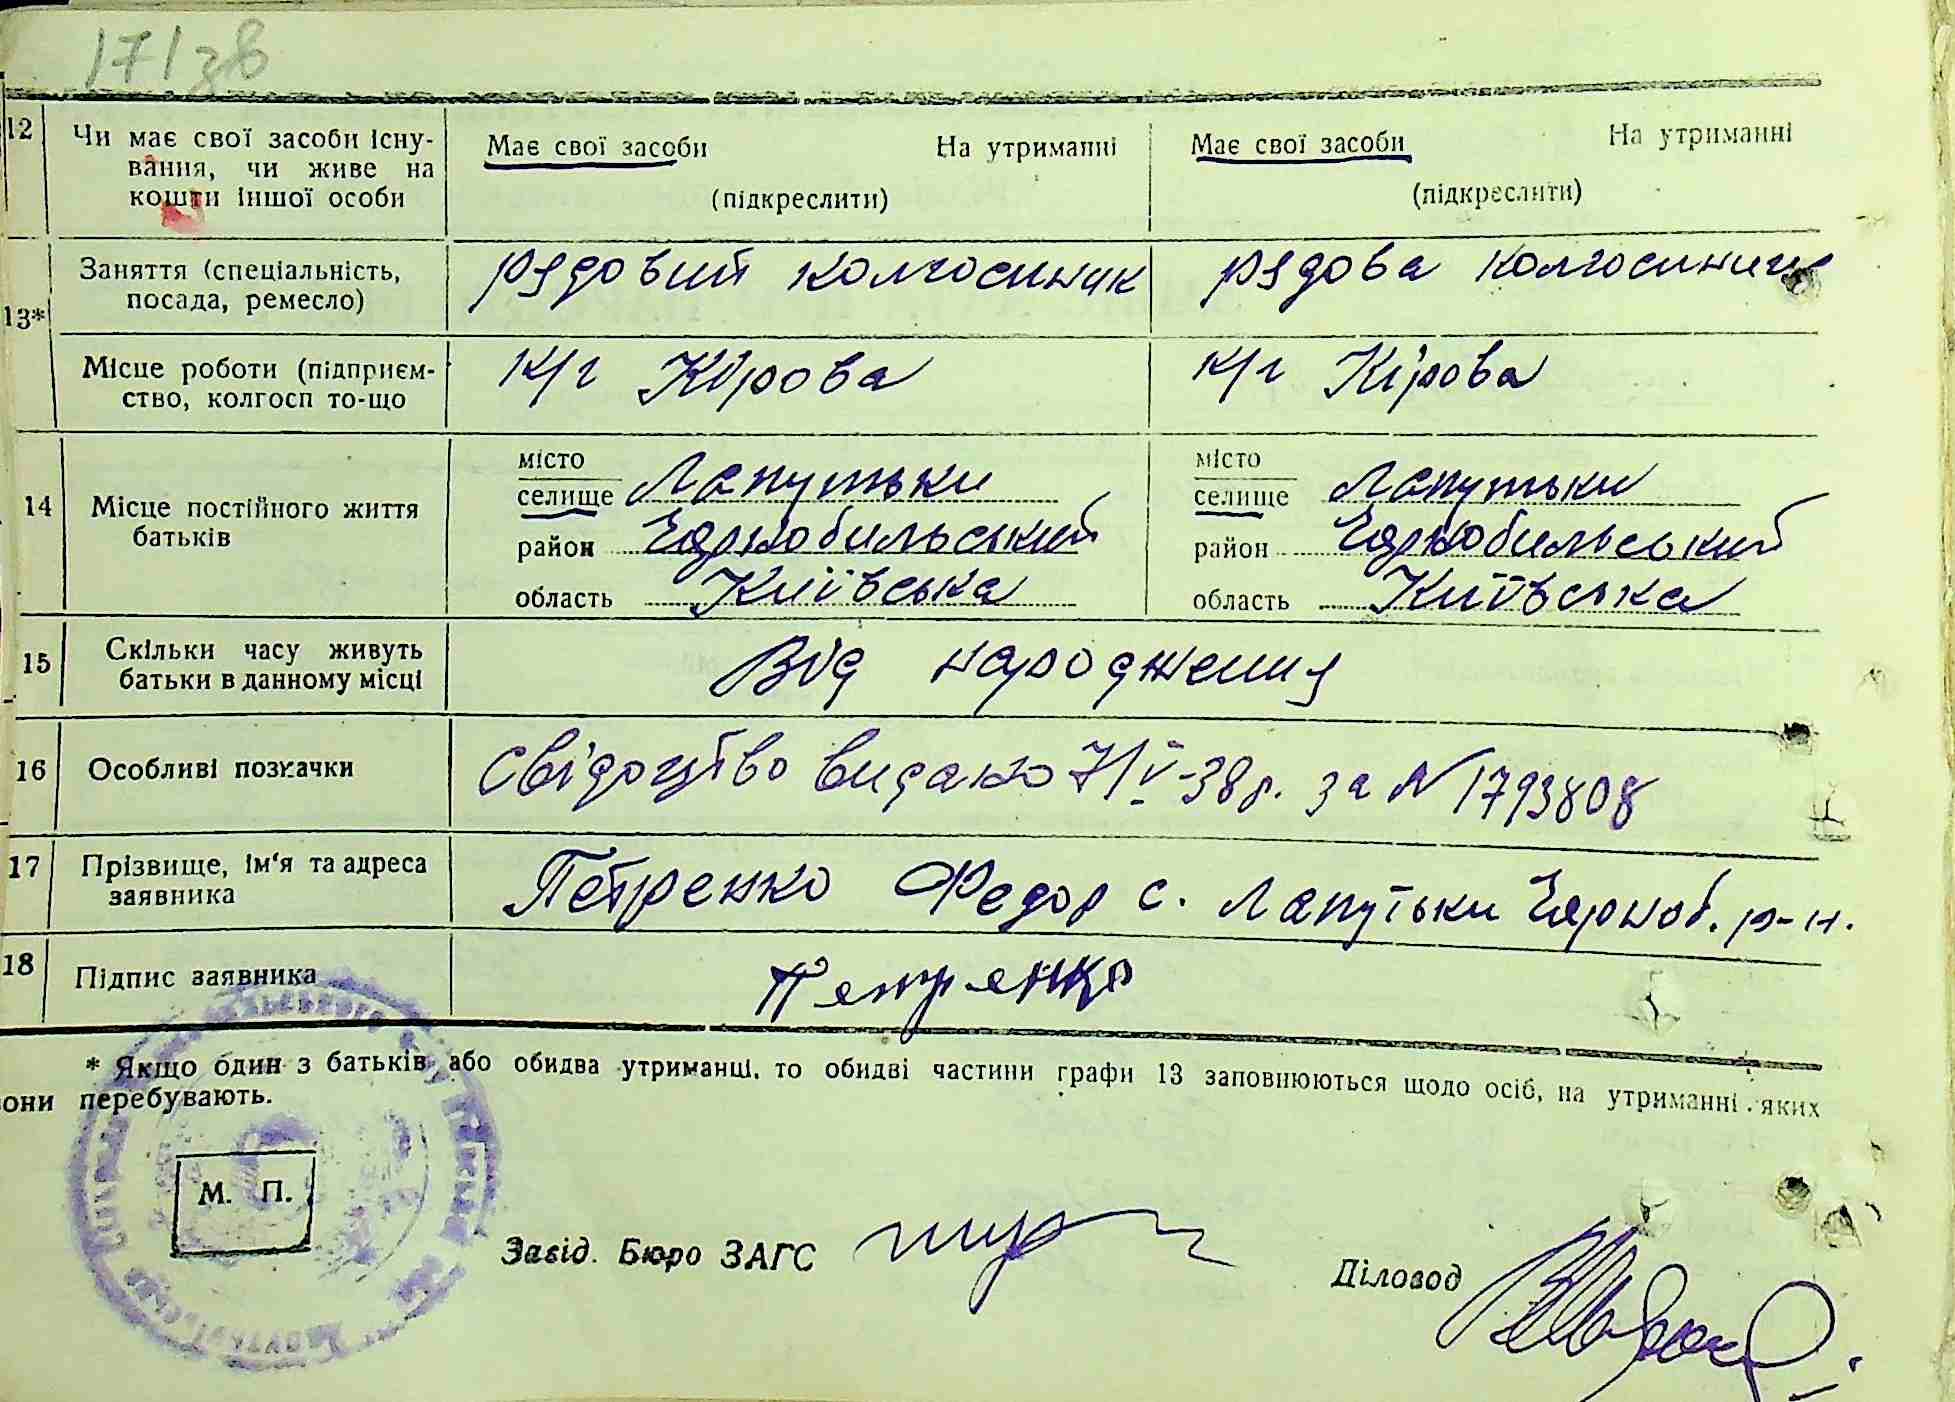 17138
12 Чи має свої засоби існу-
вання, чи живе на
кошти іншої особи
Має свої засоби На утриманні
(підкреслити)
Має свої засоби На утриманні
(підкреслити)
13*
Заняття (спеціальність,
посада, ремесло)
рядовий колгоспник
рядова колгоспниця
Місце роботи (підприєм-
ство, колгосп то-що
к/г Кірова
к/г Кірова
14 Місце постійного життя
батьків
місто
селище Лапутьки
район Чорнобильський
область Київська
місто
селище Лапутьки
район Чорнобильський
область Київська
15 Скільки часу живуть
батьки в данному місці
Від народження
16 Особливі позначки
Свідоцтво видано 7/V-38р. за N 1793808
17 Прізвище, ім'я та адреса
заявника
Петренко Федор с. Лапутьки Чорноб. р-н.
18 Підпис заявника
Петренко
* Якщо один з батьків або обидва утриманці, то обидві частини графи 13 заповнюються щодо осіб, на утриманні яких
вони перебувають.
М. П.
Завід. Бюро ЗАГС
Діловод